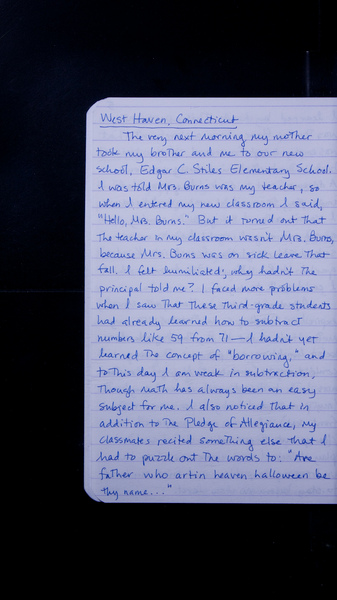 West Haven, Connecticut
The very next morning my mother
took my brother and me to our new
school, Edgar C. Stiles Elementary School.
I was told Mrs. Burns was my teacher, so
when I entered my new classroom I said,
"Hello, Mrs. Burns." But it turned out that
the teacher in my classroom wasn't Mrs. Burns,
because Mrs. Burns was on sick leave that
fall. I felt humiliated; why hadn't the
principal told me? I faced more problems
when I saw that these third-grade students
had already learned how to subtract
numbers like 59 from 71—I hadn't yet
learned the concept of "borrowing," and
to this day I am weak in subtraction,
though math has always been an easy
subject for me. I also noticed that in
addition to the Pledge of Allegiance, my
classmates recited something else that I
had to puzzle out the words to: "Are
father who artin heaven halloween be
thy name..."